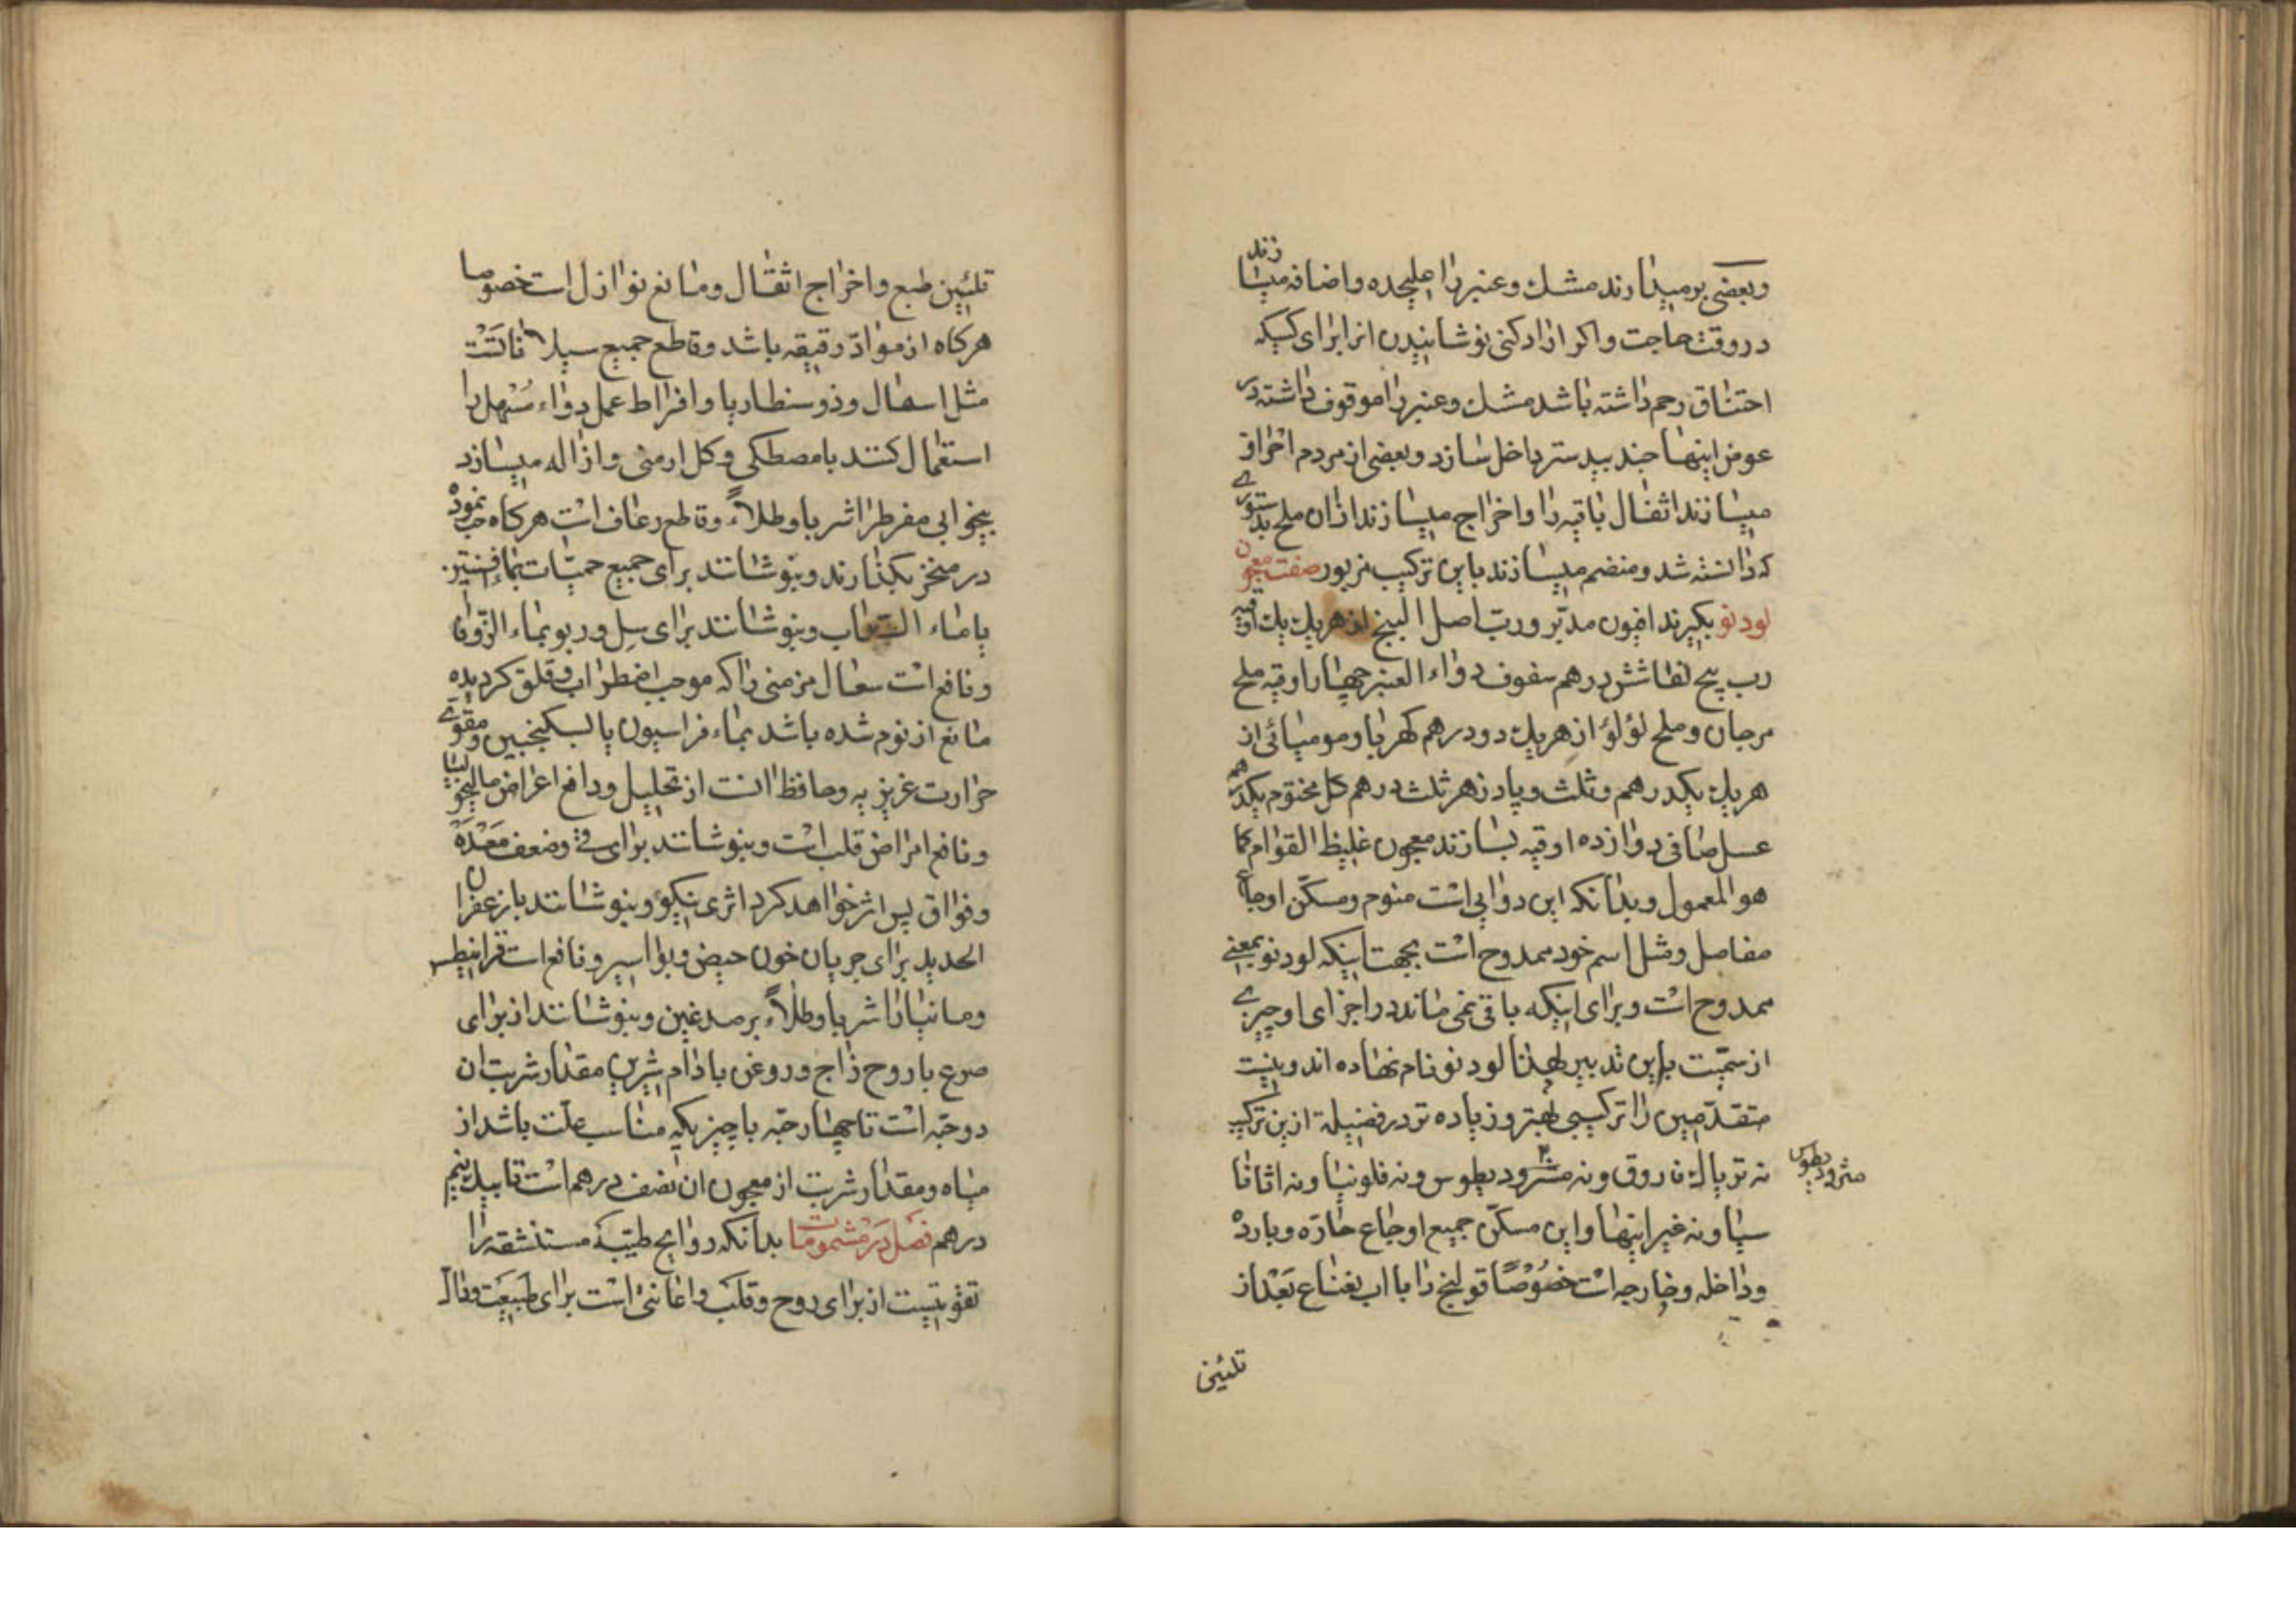 وبعضی برمیدارند مشک وعنبر را علیحده واضافه میسازند
در وقت حاجت واکر اراده کنی نوشانیدن انرا برای کسیکه
اختناق رحم داشته باشد مشک وعنبر را موقوف داشته در
عوض اینها جند بیدستر داخل سازد وبعضی از مردم احراق
میسازند اثفال باقیه را واخراج میسازند ازان ملح بدستوری
که دانسته شد ومنضم میسازند باین ترکیب مزبور صفت معجون
لودنو بکیرند افیون مدبّر وربّ اصل البنج از هریک یک اوقیه
رب بیخ لفاشش درهم سفوف دواء العنبر چهار اوقیه ملح
مرجان وملح لؤلؤ از هریک دو درهم کهربا ومومیائی از
هریک یکدرهم وثلث وپادزهر ثلث درهم کل مختوم یکدرهم
عسل صافی دوازده اوقیه بسازند معجون غلیظ القوام کما
هو المعمول وبدانکه این دوایی است منوم ومسکّن اوجاع
مفاصل ومثل اسم خود ممدوح است بجهت اینکه لودنو بمعنی
ممدوح است وبرای اینکه باقی نمی ماند در اجزای او چیزی
از سمّیت باین تدبیر لهذا لودنو نام نهاده اند ونیست
متقدّمین را ترکیبی بهتر وزیاده تر در فضیلة ازین ترکیب
نه تریاک فاروق ونه مشرودیطوس ونه فلونیا ونه اثاناسیا
مثرودیطوس
سیا ونه غیر اینها واین مسکّن جمیع اوجاع حارّه وبارده
وداخله وخارجه است خصُوصًا قولنج را با اب نعناع بعد از
تلئین
تلئین طبع واخراج اثقال ومانع نوازل است خصوصا
هرکاه از موادّ رقیقه باشد وقاطع جمیع سیلانات است
مثل اسهال وذوسنطاریا وافراط عمل دواء مُسْهل را
استعمال کنند با مصطکی وکل ارمنی وازاله میسازد
بیخوابی مفرط را شربا وطلاءً وقاطع رعاف است هرکاه حب نموده
در منخر بکذارند وبنوشانند برای جمیع حمیّات بماء افسنتین
یا ماء وبنوشانند برای سِل وربو بماء الزّوفا
ونافع است سعال مزمنی را که موجب اضطراب وقلق کردیده
مانع از نوم شده باشد بماء فراسیون یا بسکنجبین ومقوی
حرارت غریزیه وحافظ انست از تحلیل ودافع اعراض مالیخولیا
ونافع امراض قلب است وبنوشانند برای قی وضعف معده
وفواق پس اثر خواهد کرد اثری نیکو وبنوشانند با زعفران
الحدید برای جریان خون حیض وبواسیر ونافع است قرانیطس
ومانیا را شربا وطلاءً بر صدغین وبنوشانند از برای
صرع با روح زاج وروغن بادام شیرین مقدار شربت ان
دو حبّه است تا چهار حبّه با چیزیکه مناسب علّت باشد از
میاه ومقدار شربت از معجون ان نصف درهم است تا یک ونیم
درهم فصل در مشمومات بدانکه روایح طیّبهٔ مستنشقه را
تقویتیست از برای روح وقلب واعانتی است برای طبیعت وقال